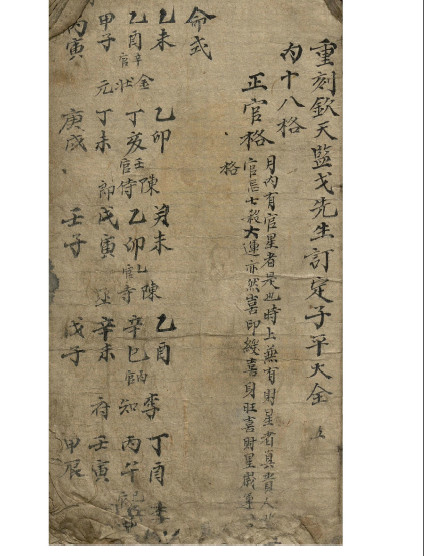 重刻欽天監戈先生訂定子平大全
內十八格
正官格
月內有官星者是也時上兼有財星者真貴人
官忌七殺大運亦然喜印綬喜身旺喜財星
格
命式
乙未 乙卯 癸未 乙酉 丁酉
辛官 金 壬官 陳 乙官 陳 丙官 李 李
乙酉 狀 丁亥 侍 乙卯 寺 辛巳 知 丙午
甲子 元 丁未 郎 戊寅 丞 辛未 府 壬寅
丙寅 庚戌 壬子 戊子 甲辰